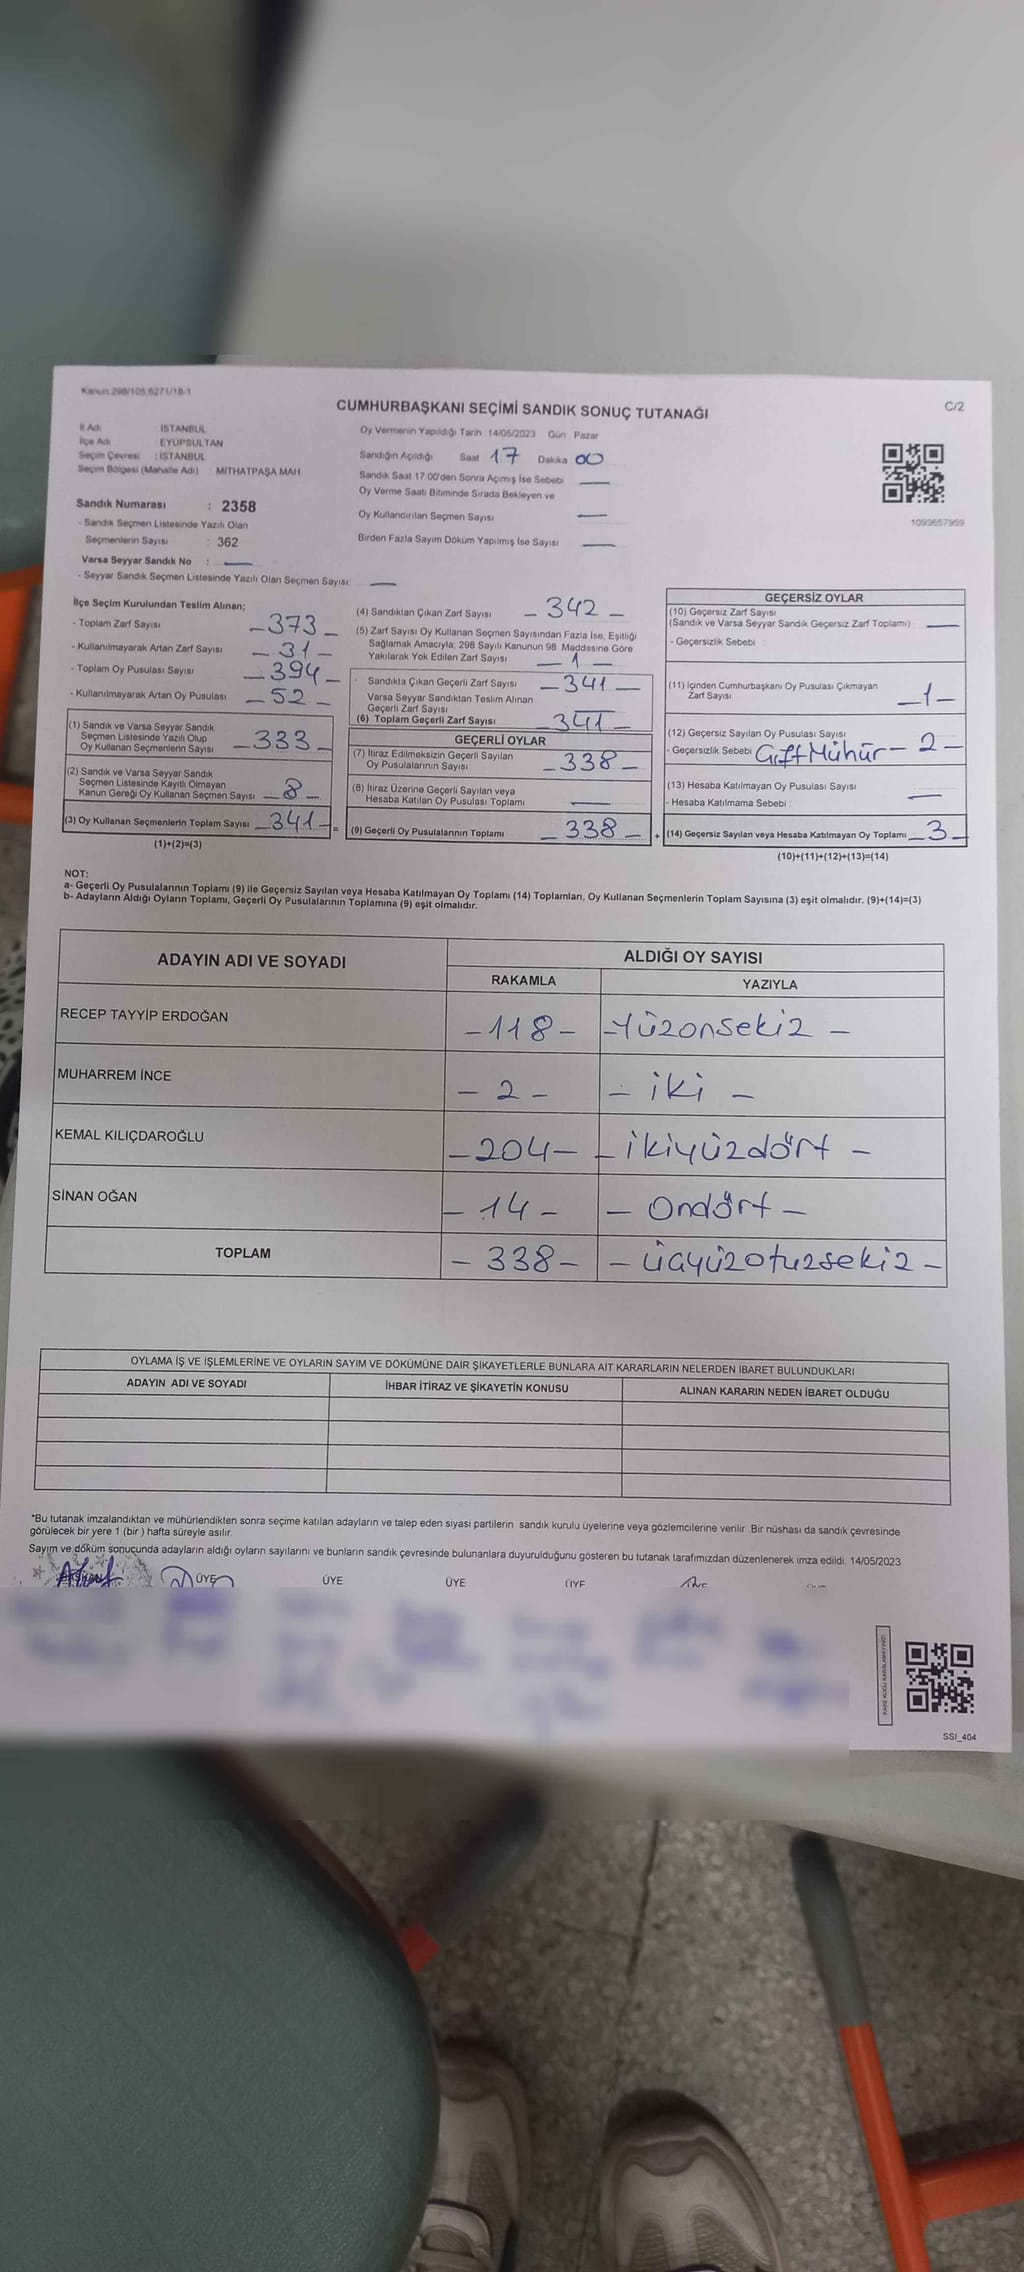 Kanun:298/105;6271/18-1
C/2
CUMHURBAŞKANI SEÇİMİ SANDIK SONUÇ TUTANAĞI
İl Adı : İSTANBUL
İlçe Adı : EYÜPSULTAN
Seçim Çevresi : İSTANBUL
Seçim Bölgesi (Mahalle Adı) : MİTHATPAŞA MAH.
Sandık Numarası : 2358
- Sandık Seçmen Listesinde Yazılı Olan
Seçmenlerin Sayısı : 362
Varsa Seyyar Sandık No : —
- Seyyar Sandık Seçmen Listesinde Yazılı Olan Seçmen Sayısı: —
Oy Vermenin Yapıldığı Tarih :14/05/2023 Gün Pazar
Sandığın Açıldığı Saat 17 Dakika 00
Sandık Saat 17:00'den Sonra Açımış İse Sebebi —
Oy Verme Saati Bitiminde Sırada Bekleyen ve
Oy Kullandırılan Seçmen Sayısı —
Birden Fazla Sayım Döküm Yapılmış İse Sayısı —
1093657959
İlçe Seçim Kurulundan Teslim Alınan;
- Toplam Zarf Sayısı – 373 –
- Kullanılmayarak Artan Zarf Sayısı – 31 –
- Toplam Oy Pusulası Sayısı – 394 –
- Kullanılmayarak Artan Oy Pusulası – 52 –
(1) Sandık ve Varsa Seyyar Sandık
Seçmen Listesinde Yazılı Olup
Oy Kullanan Seçmenlerin Sayısı – 333 –
(2) Sandık ve Varsa Seyyar Sandık
Seçmen Listesinde Kayıtlı Olmayan
Kanun Gereği Oy Kullanan Seçmen Sayısı – 8 –
(3) Oy Kullanan Seçmenlerin Toplam Sayısı – 341 – =
(1)+(2)=(3)
(4) Sandıktan Çıkan Zarf Sayısı – 342 –
(5) Zarf Sayısı Oy Kullanan Seçmen Sayısından Fazla İse, Eşitliği
Sağlamak Amacıyla, 298 Sayılı Kanunun 98. Maddesine Göre
Yakılarak Yok Edilen Zarf Sayısı – 1 –
Sandıkta Çıkan Geçerli Zarf Sayısı – 341 –
Varsa Seyyar Sandıktan Teslim Alınan
Geçerli Zarf Sayısı —
(6) Toplam Geçerli Zarf Sayısı – 341 –
GEÇERLİ OYLAR
(7) İtiraz Edilmeksizin Geçerli Sayılan
Oy Pusulalarının Sayısı – 338 –
(8) İtiraz Üzerine Geçerli Sayılan veya
Hesaba Katılan Oy Pusulası Toplamı —
(9) Geçerli Oy Pusulalarının Toplamı – 338 – +
GEÇERSİZ OYLAR
(10) Geçersiz Zarf Sayısı
(Sandık ve Varsa Seyyar Sandık Geçersiz Zarf Toplamı) —
- Geçersizlik Sebebi :
(11) İçinden Cumhurbaşkanı Oy Pusulası Çıkmayan
Zarf Sayısı – 1 –
(12) Geçersiz Sayılan Oy Pusulası Sayısı
- Geçersizlik Sebebi Çift Mühür – 2 –
(13) Hesaba Katılmayan Oy Pusulası Sayısı —
- Hesaba Katılmama Sebebi :
(14) Geçersiz Sayılan veya Hesaba Katılmayan Oy Toplamı – 3 –
(10)+(11)+(12)+(13)=(14)
NOT:
a- Geçerli Oy Pusulalarının Toplamı (9) ile Geçersiz Sayılan veya Hesaba Katılmayan Oy Toplamı (14) Toplamları, Oy Kullanan Seçmenlerin Toplam Sayısına (3) eşit olmalıdır. (9)+(14)=(3)
b- Adayların Aldığı Oyların Toplamı, Geçerli Oy Pusulalarının Toplamına (9) eşit olmalıdır.
ADAYIN ADI VE SOYADI
ALDIĞI OY SAYISI
RAKAMLA YAZIYLA
RECEP TAYYİP ERDOĞAN – 118 – – Yüzonsekiz –
MUHARREM İNCE – 2 – – iki –
KEMAL KILIÇDAROĞLU – 204 – – ikiyüzdört –
SİNAN OĞAN – 14 – – Ondört –
TOPLAM – 338 – – üçyüzotuzsekiz –
OYLAMA İŞ VE İŞLEMLERİNE VE OYLARIN SAYIM VE DÖKÜMÜNE DAİR ŞİKAYETLERLE BUNLARA AİT KARARLARIN NELERDEN İBARET BULUNDUKLARI
ADAYIN ADI VE SOYADI İHBAR İTİRAZ VE ŞİKAYETİN KONUSU ALINAN KARARIN NEDEN İBARET OLDUĞU
*Bu tutanak imzalandıktan ve mühürlendikten sonra seçime katılan adayların ve talep eden siyasi partilerin sandık kurulu üyelerine veya gözlemcilerine verilir. Bir nüshası da sandık çevresinde
görülecek bir yere 1 (bir ) hafta süreyle asılır.
Sayım ve döküm sonucunda adayların aldığı oyların sayılarını ve bunların sandık çevresinde bulunanlara duyurulduğunu gösteren bu tutanak tarafımızdan düzenlenerek imza edildi. 14/05/2023
BAŞKAN ÜYE ÜYE ÜYE ÜYE
KARE KODU KARALAMAYINIZ!
SSI_404